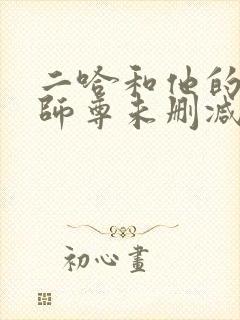 二哈和他的
師尊未删减
初心畫